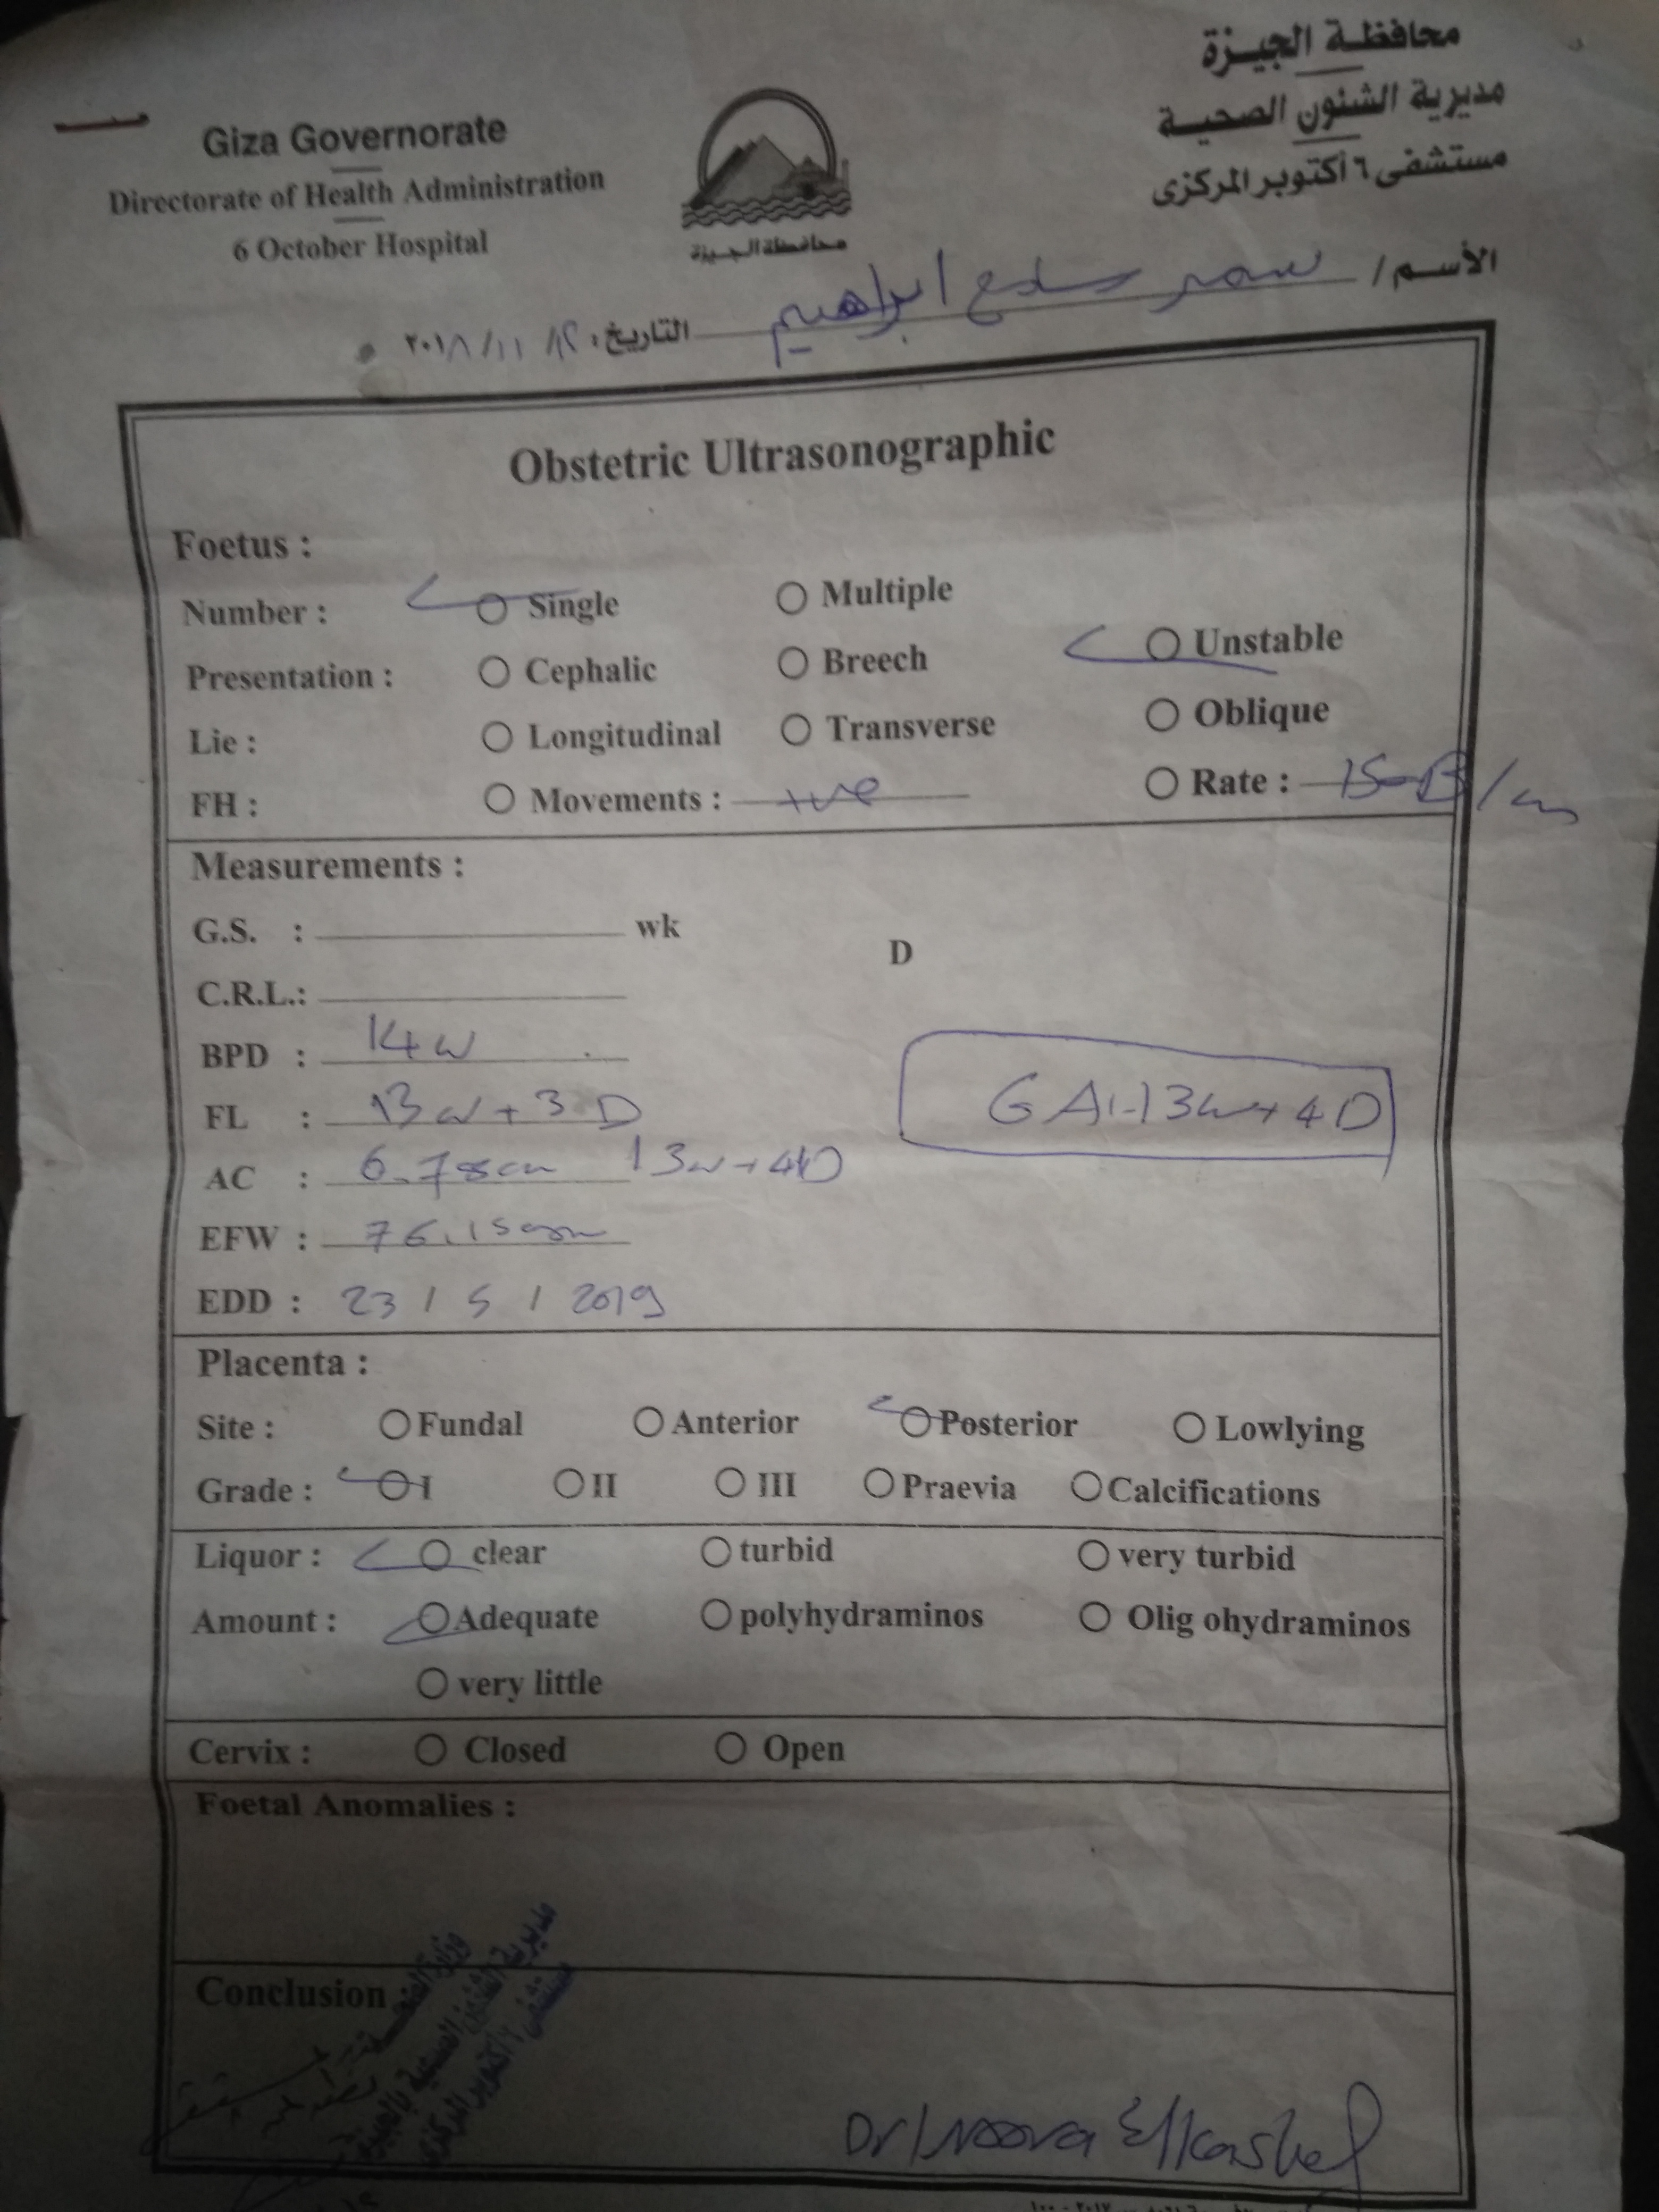 محافظة الجيزة
مديرية الشئون الصحية
مستشفى ٦ أكتوبر المركزى
Giza Governorate
Directorate of Health Administration
6 October Hospital
محافظة الجيزة
الأسم / سمر ابراهيم
التاريخ : ١٢/ ١١/ ٢٠١٨
Obstetric Ultrasonographic
Foetus :
Number : Single Multiple
Presentation : Cephalic Breech Unstable
Lie : Longitudinal Transverse Oblique
FH : Movements : +ve Rate : 150 B/m
Measurements :
G.S. : wk D
C.R.L.:
BPD : 14 w
FL : 13 w + 3 D
GA:-13w+4D
AC : 6.78cm 13w+4D
EFW : 76.15gm
EDD : 23 / 5 / 2019
Placenta :
Site : Fundal Anterior Posterior Lowlying
Grade : I II III Praevia Calcifications
Liquor : clear turbid very turbid
Amount : Adequate polyhydraminos Olig ohydraminos
very little
Cervix : Closed Open
Foetal Anomalies :
Conclusion
مديرية الشئون الصحية بالجيزة
مستشفى ٦ أكتوبر المركزى
Dr/noora Elkashef